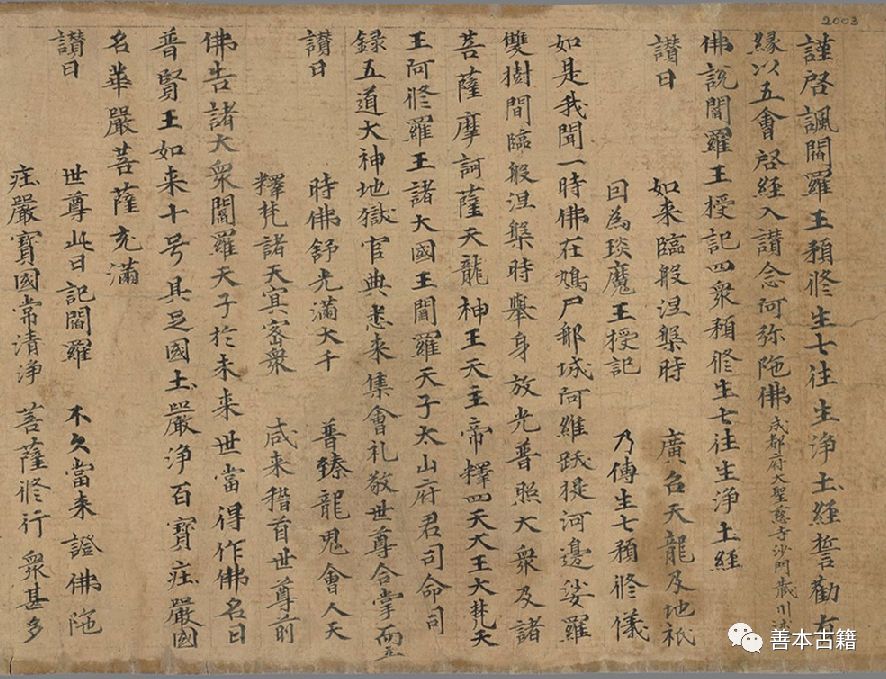 2003
謹啓諷閻羅王預修生七往生淨土經誓勸有
緣以五會啓經入讃念阿弥陁佛 成都府大聖慈寺沙門藏川述
佛說閻羅王授記四衆預修生七往生淨土經
讃曰 如来臨般涅槃時 廣召天龍及地祇
因為琰魔王授記 乃傳生七預修儀
如是我聞一時佛在鳩尸那城阿維跋提河邊娑羅
雙樹間臨般涅槃時舉身放光普照大衆及諸
菩薩摩訶薩天龍神王天主帝釋四天大王大梵天
王阿修羅王諸大國王閻羅天子太山府君司命司
録五道大神地獄官典悉来集會礼敬世尊合掌而立
讃曰 時佛舒光滿大千 普臻龍鬼會人天
釋梵諸天冥密衆 咸来稽首世尊前
佛告諸大衆閻羅天子於未来世當得作佛名曰
普賢王如来十号具足國土嚴淨百寳莊嚴國
名華嚴菩薩充滿
讃曰 世尊此日記閻羅 不久當来證佛陁
莊嚴寳國常清淨 菩薩修行衆甚多
善本古籍